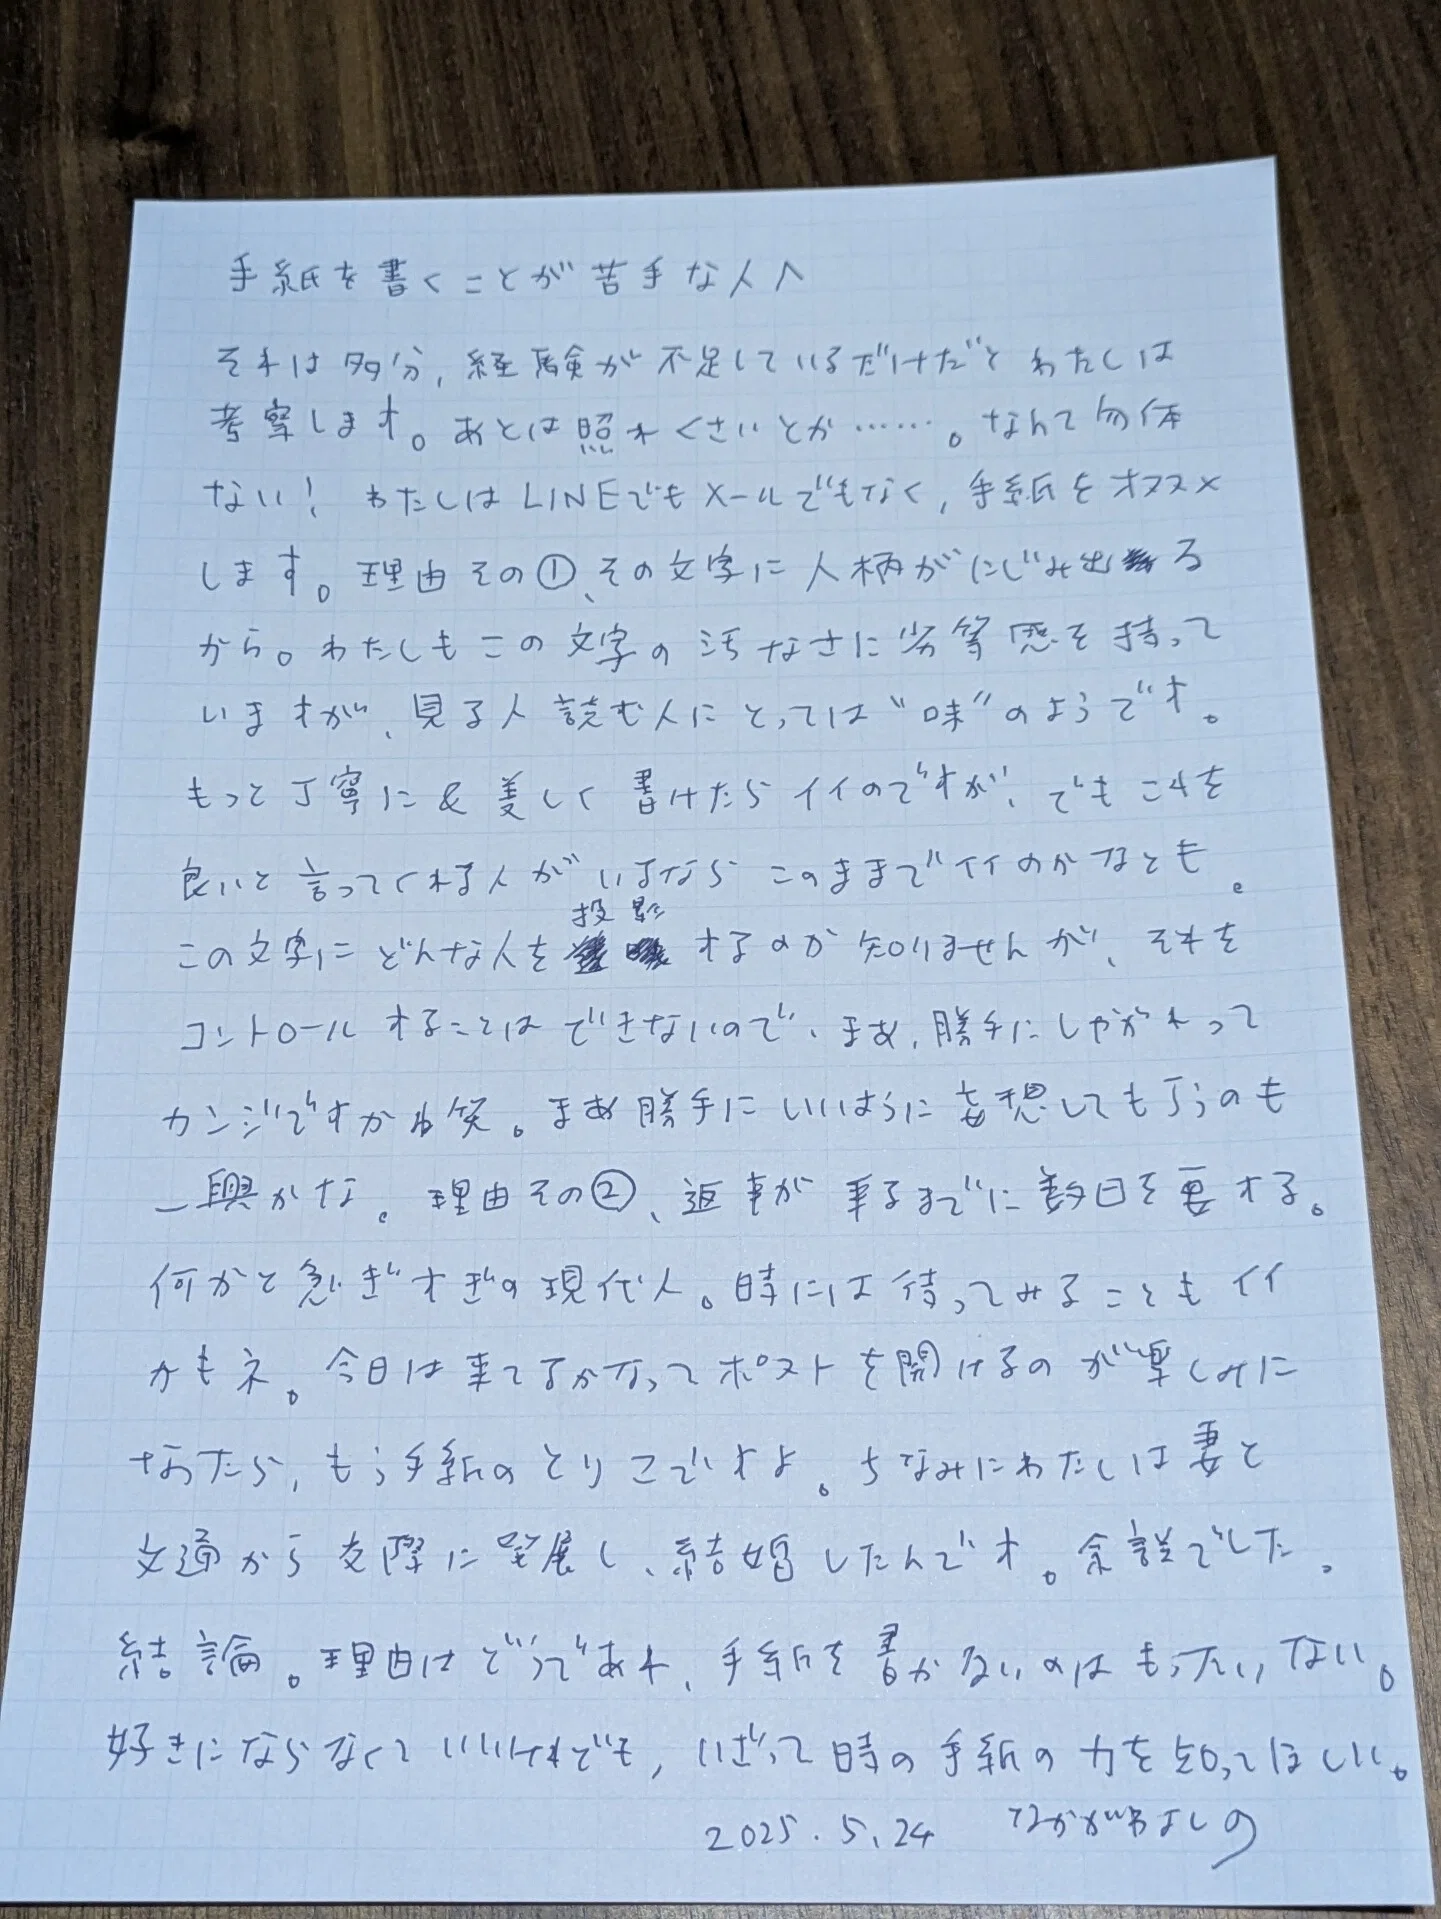 手紙を書くことが苦手な人へ
それは多分、経験が不足しているだけだとわたしは
考察します。あとは照れくさいとか……。なんて勿体
ない! わたしはLINEでもメールでもなく、手紙をオススメ
します。理由その①、その文字に人柄がにじみ出る
から。わたしもこの文字の汚なさに劣等感を持って
いますが、見る人読む人にとっては“味”のようです。
もっと丁寧に&美しく書けたらイイのですが、でもこれを
良いと言ってくれる人がいるならこのままでイイのかなとも。
この文字にどんな人を投影するのか知りませんが、それを
コントロールすることはできないので、まあ、勝手にしやがれって
カンジですかね笑。まあ勝手にいいように妄想してもらうのも
一興かな。理由その②、返事が来るまでに数日を要する。
何かと急ぎすぎの現代人。時には待ってみることもイイ
かもネ。今日は来てるかなってポストを開けるのが楽しみに
なったら、もう手紙のとりこですよ。ちなみにわたしは妻と
文通から交際に発展し、結婚したんです。余談でした。
結論。理由はどうであれ、手紙を書かないのはもったいない。
好きにならなくていいけれども、いざって時の手紙の力を知ってほしい。
2025.5.24 なかがわよしの